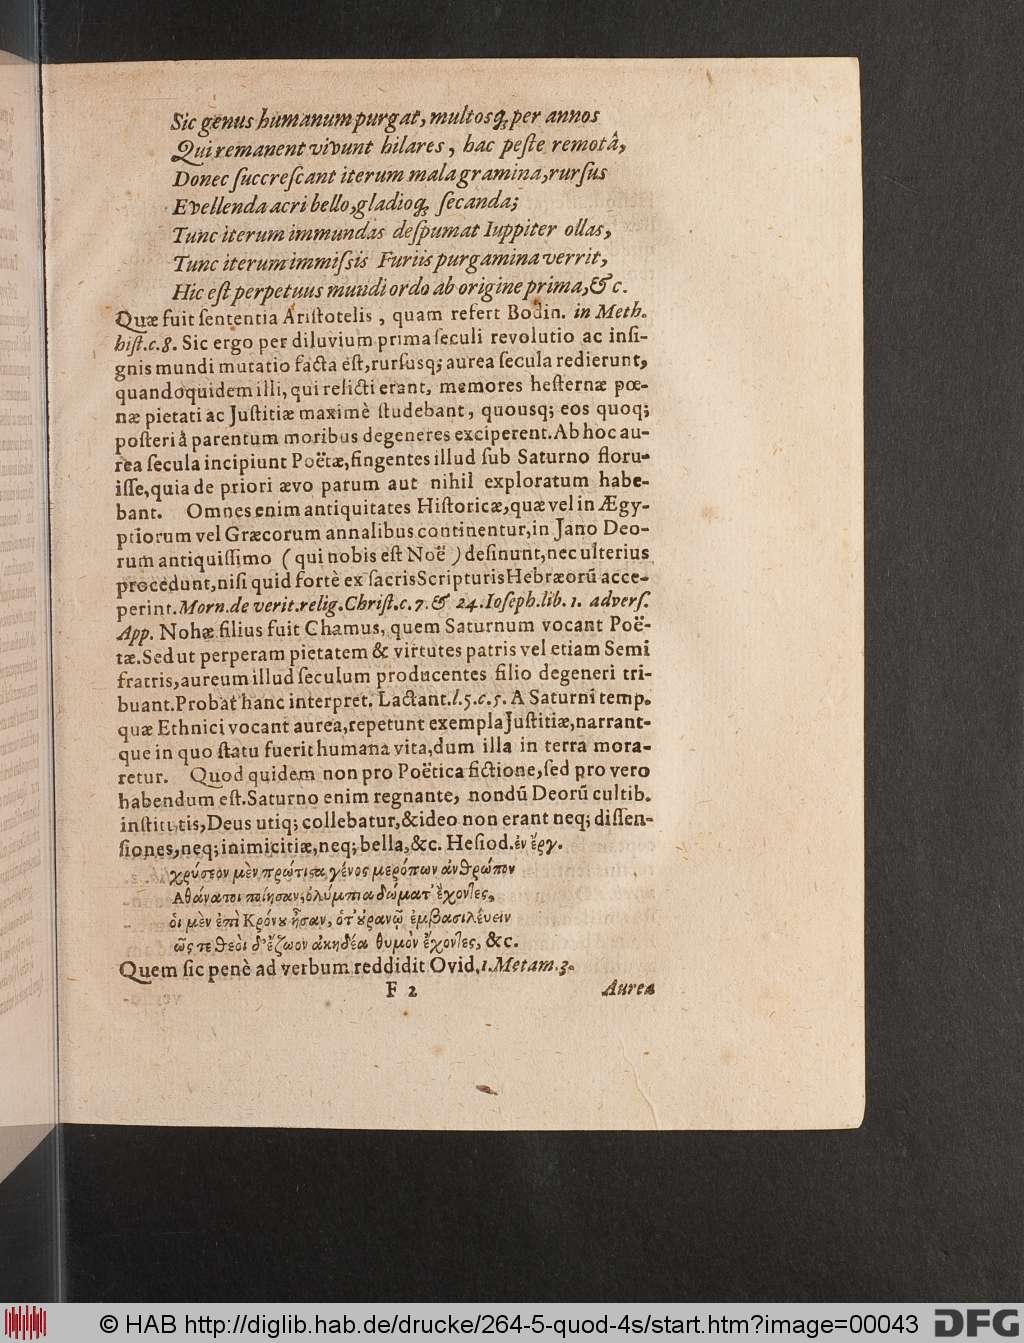 Sic genus humanum purgat, multosq́; per annos
Qui remanent vivunt hilares, hac peſte remotâ,
Donec ſuccreſcant iterum mala gramina, rurſus
Evellenda acri bello, gladioq́; ſecanda;
Tunc iterum immundas deſpumat Iuppiter ollas,
Tunc iterum immiſsis Furiis purgamina verrit,
Hic eſt perpetuus mundi ordo ab origine prima, &c.
Quæ fuit ſententia Ariſtotelis, quam refert Bodin. in Meth.
hiſt.c.8. Sic ergo per diluvium prima ſeculi revolutio ac inſi-
gnis mundi mutatio facta eſt, rurſusq; aurea ſecula redierunt,
quandoquidem illi, qui relicti erant, memores heſternæ pœ-
næ pietati ac Juſtitiæ maximè ſtudebant, quousq; eos quoq;
poſteri à parentum moribus degeneres exciperent. Ab hoc au-
rea ſecula incipiunt Poëtæ, fingentes illud ſub Saturno floru-
iſſe, quia de priori ævo parum aut nihil exploratum habe-
bant. Omnes enim antiquitates Hiſtoricæ, quæ vel in Ægy-
ptiorum vel Græcorum annalibus continentur, in Jano Deo-
rum antiquiſſimo (qui nobis eſt Noë) deſinunt, nec ulterius
procedunt, niſi quid fortè ex ſacris Scripturis Hebræorũ acce-
perint. Morn. de verit. relig. Chriſt. c. 7. & 24. Ioſeph. lib. 1. adverſ.
App. Nohæ filius fuit Chamus, quem Saturnum vocant Poë-
tæ. Sed ut perperam pietatem & virtutes patris vel etiam Semi
fratris, aureum illud ſeculum producentes filio degeneri tri-
buant. Probat hanc interpret. Lactant. l.5.c.5. A Saturni temp.
quæ Ethnici vocant aurea, repetunt exempla Juſtitiæ, narrant-
que in quo ſtatu fuerit humana vita, dum illa in terra mora-
retur. Quod quidem non pro Poëtica fictione, ſed pro vero
habendum eſt. Saturno enim regnante, nondũ Deorũ cultib.
inſtitutis, Deus utiq; collebatur, & ideo non erant neq; diſſen-
ſiones, neq; inimicitiæ, neq; bella, &c. Heſiod. ἐν ἔργ.
χρύσεον μὲν πρώτιςα γένος μερόπων ἀνθρώπον
Αθάνατοι ποίησαν, ὀλύμπια δώματ' ἔχοντες,
ὁι μὲν ἐπὶ Κρόνȣ ἦσαν, ὁτ' ȣ̓ρανῷ ἐμβασιλέυειν
ὥς τε θεὸι δ' ἔζωον ἀκηδέα θυμὸν ἔχοντες, &c.
Quem ſic penè ad verbum reddidit Ovid. 1. Metam. 3.
F 2 Aurea
© HAB http://diglib.hab.de/drucke/264-5-quod-4s/start.htm?image=00043 DFG